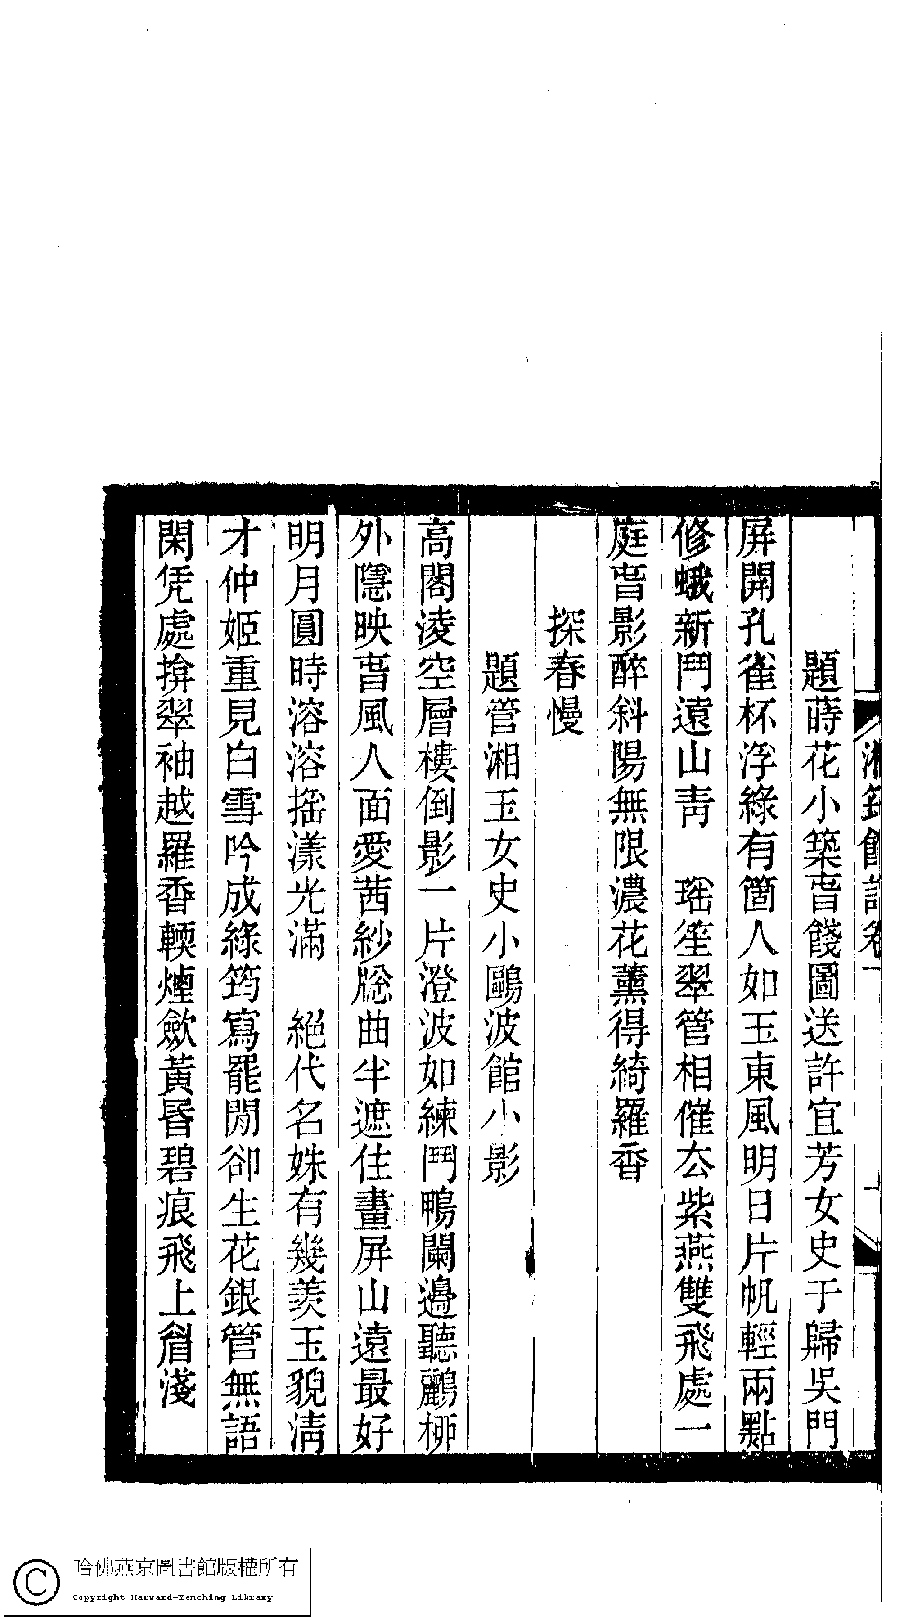 湘筠館詞卷一
題蒔花小築旾餞圖送許宜芳女史于歸吳門
屏開孔雀杯浮綠有箇人如玉東風明日片帆輕兩點
修蛾新鬥遠山靑　瑶笙翠管相催厺紫燕雙飛處一
庭旾影醉斜陽無限濃花薰得綺羅香
探春慢
題管湘玉女史小鷗波館小影
高閣淩空層樓倒影一片澄波如練鬥鴨闌邊聽鸝桺
外隱映旾風人面愛茜紗牕曲半遮住畫屏山遠最好
明月圓時溶溶搖漾光滿　絕代名姝有幾羨玉貌淸
才仲姬重見白雪吟成綠筠寫罷閒卻生花銀管無語
閑凭處揜翠袖越羅香輭煙斂黃昏碧痕飛上眉淺
哈佛燕京圖書館版權所有
Copyright Harvard-Yenching Library